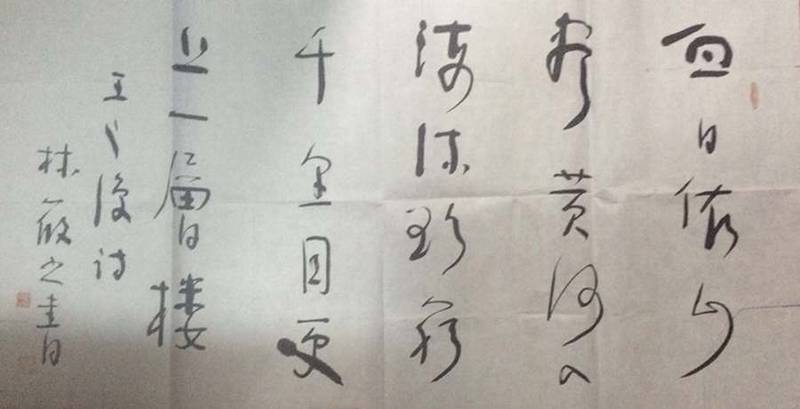 白日依山
尽黄河入
海流欲穷
千里目更
上一層楼
王之涣诗
林散之書